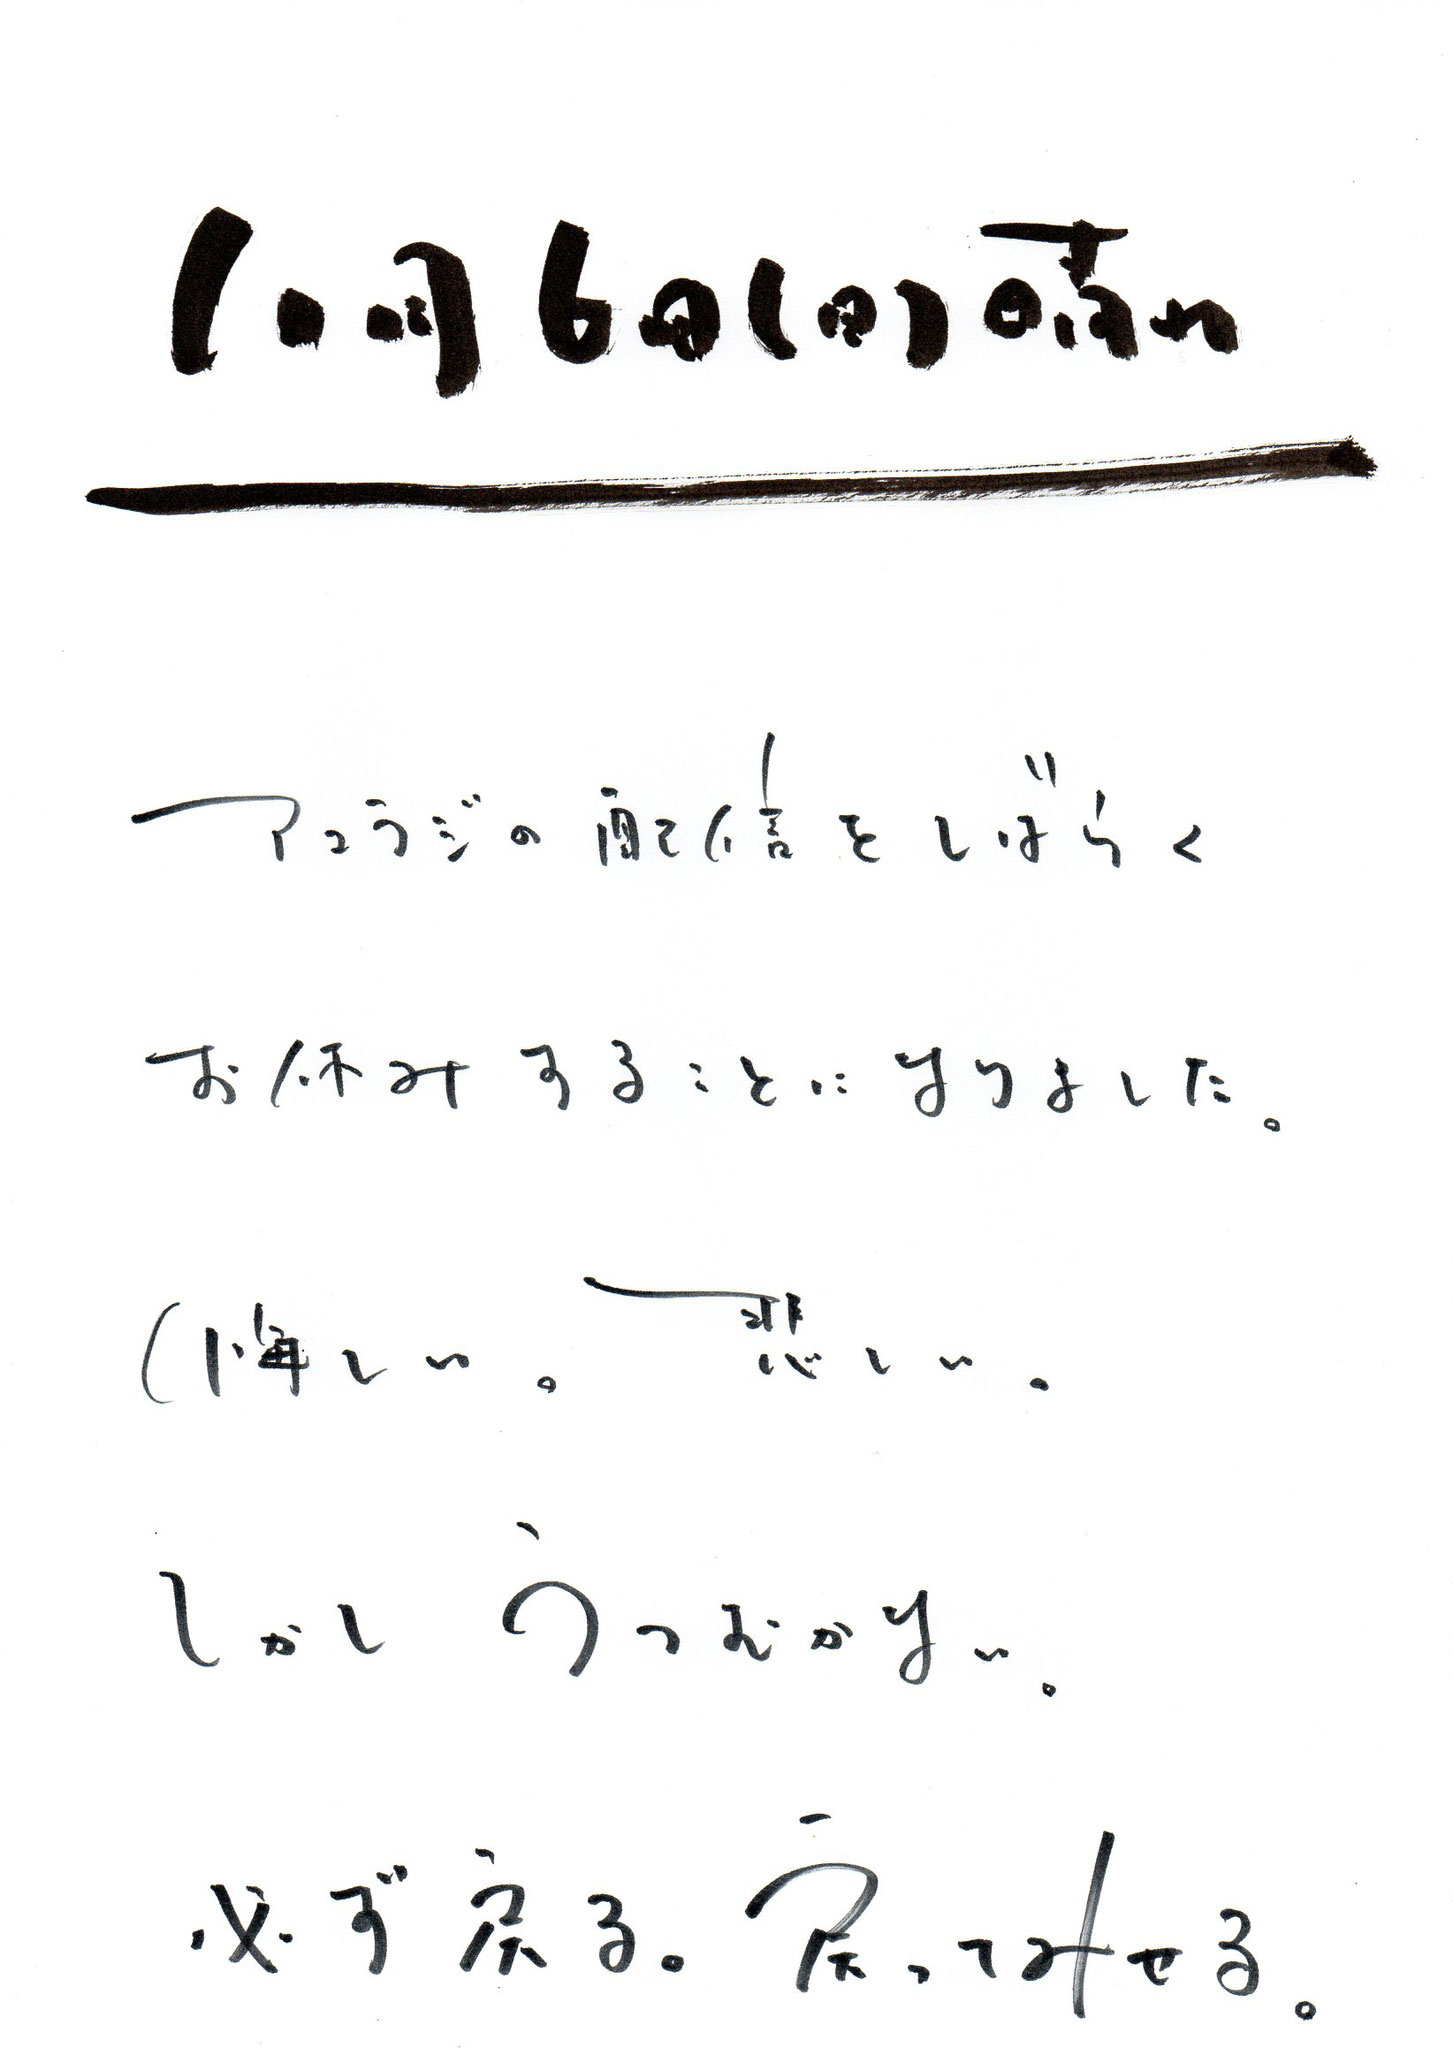 10月6日(日)晴れ
アコラジの配信をしばらく
お休みすることになりました。
悔しい。悲しい。
しかしうつむかない。
必ず戻る。戻ってみせる。